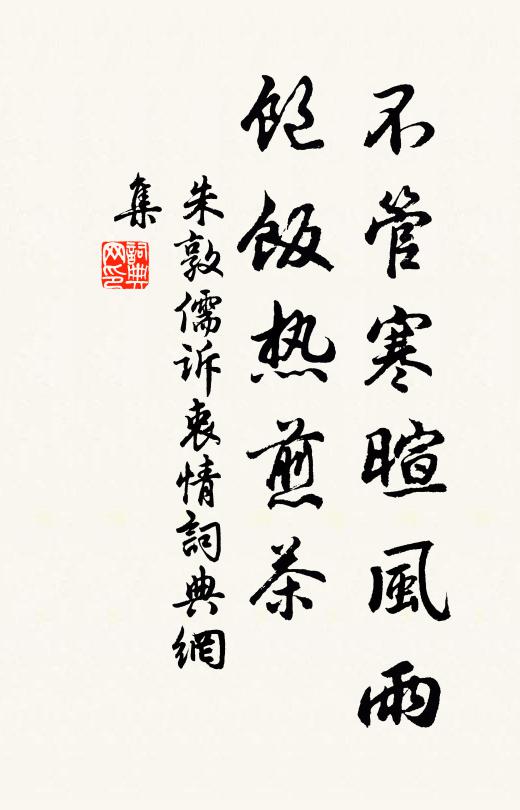 不管寒暄風雨
飽飯热煎茶
朱敦儒訴衷情詞典網
集
詞典
网印